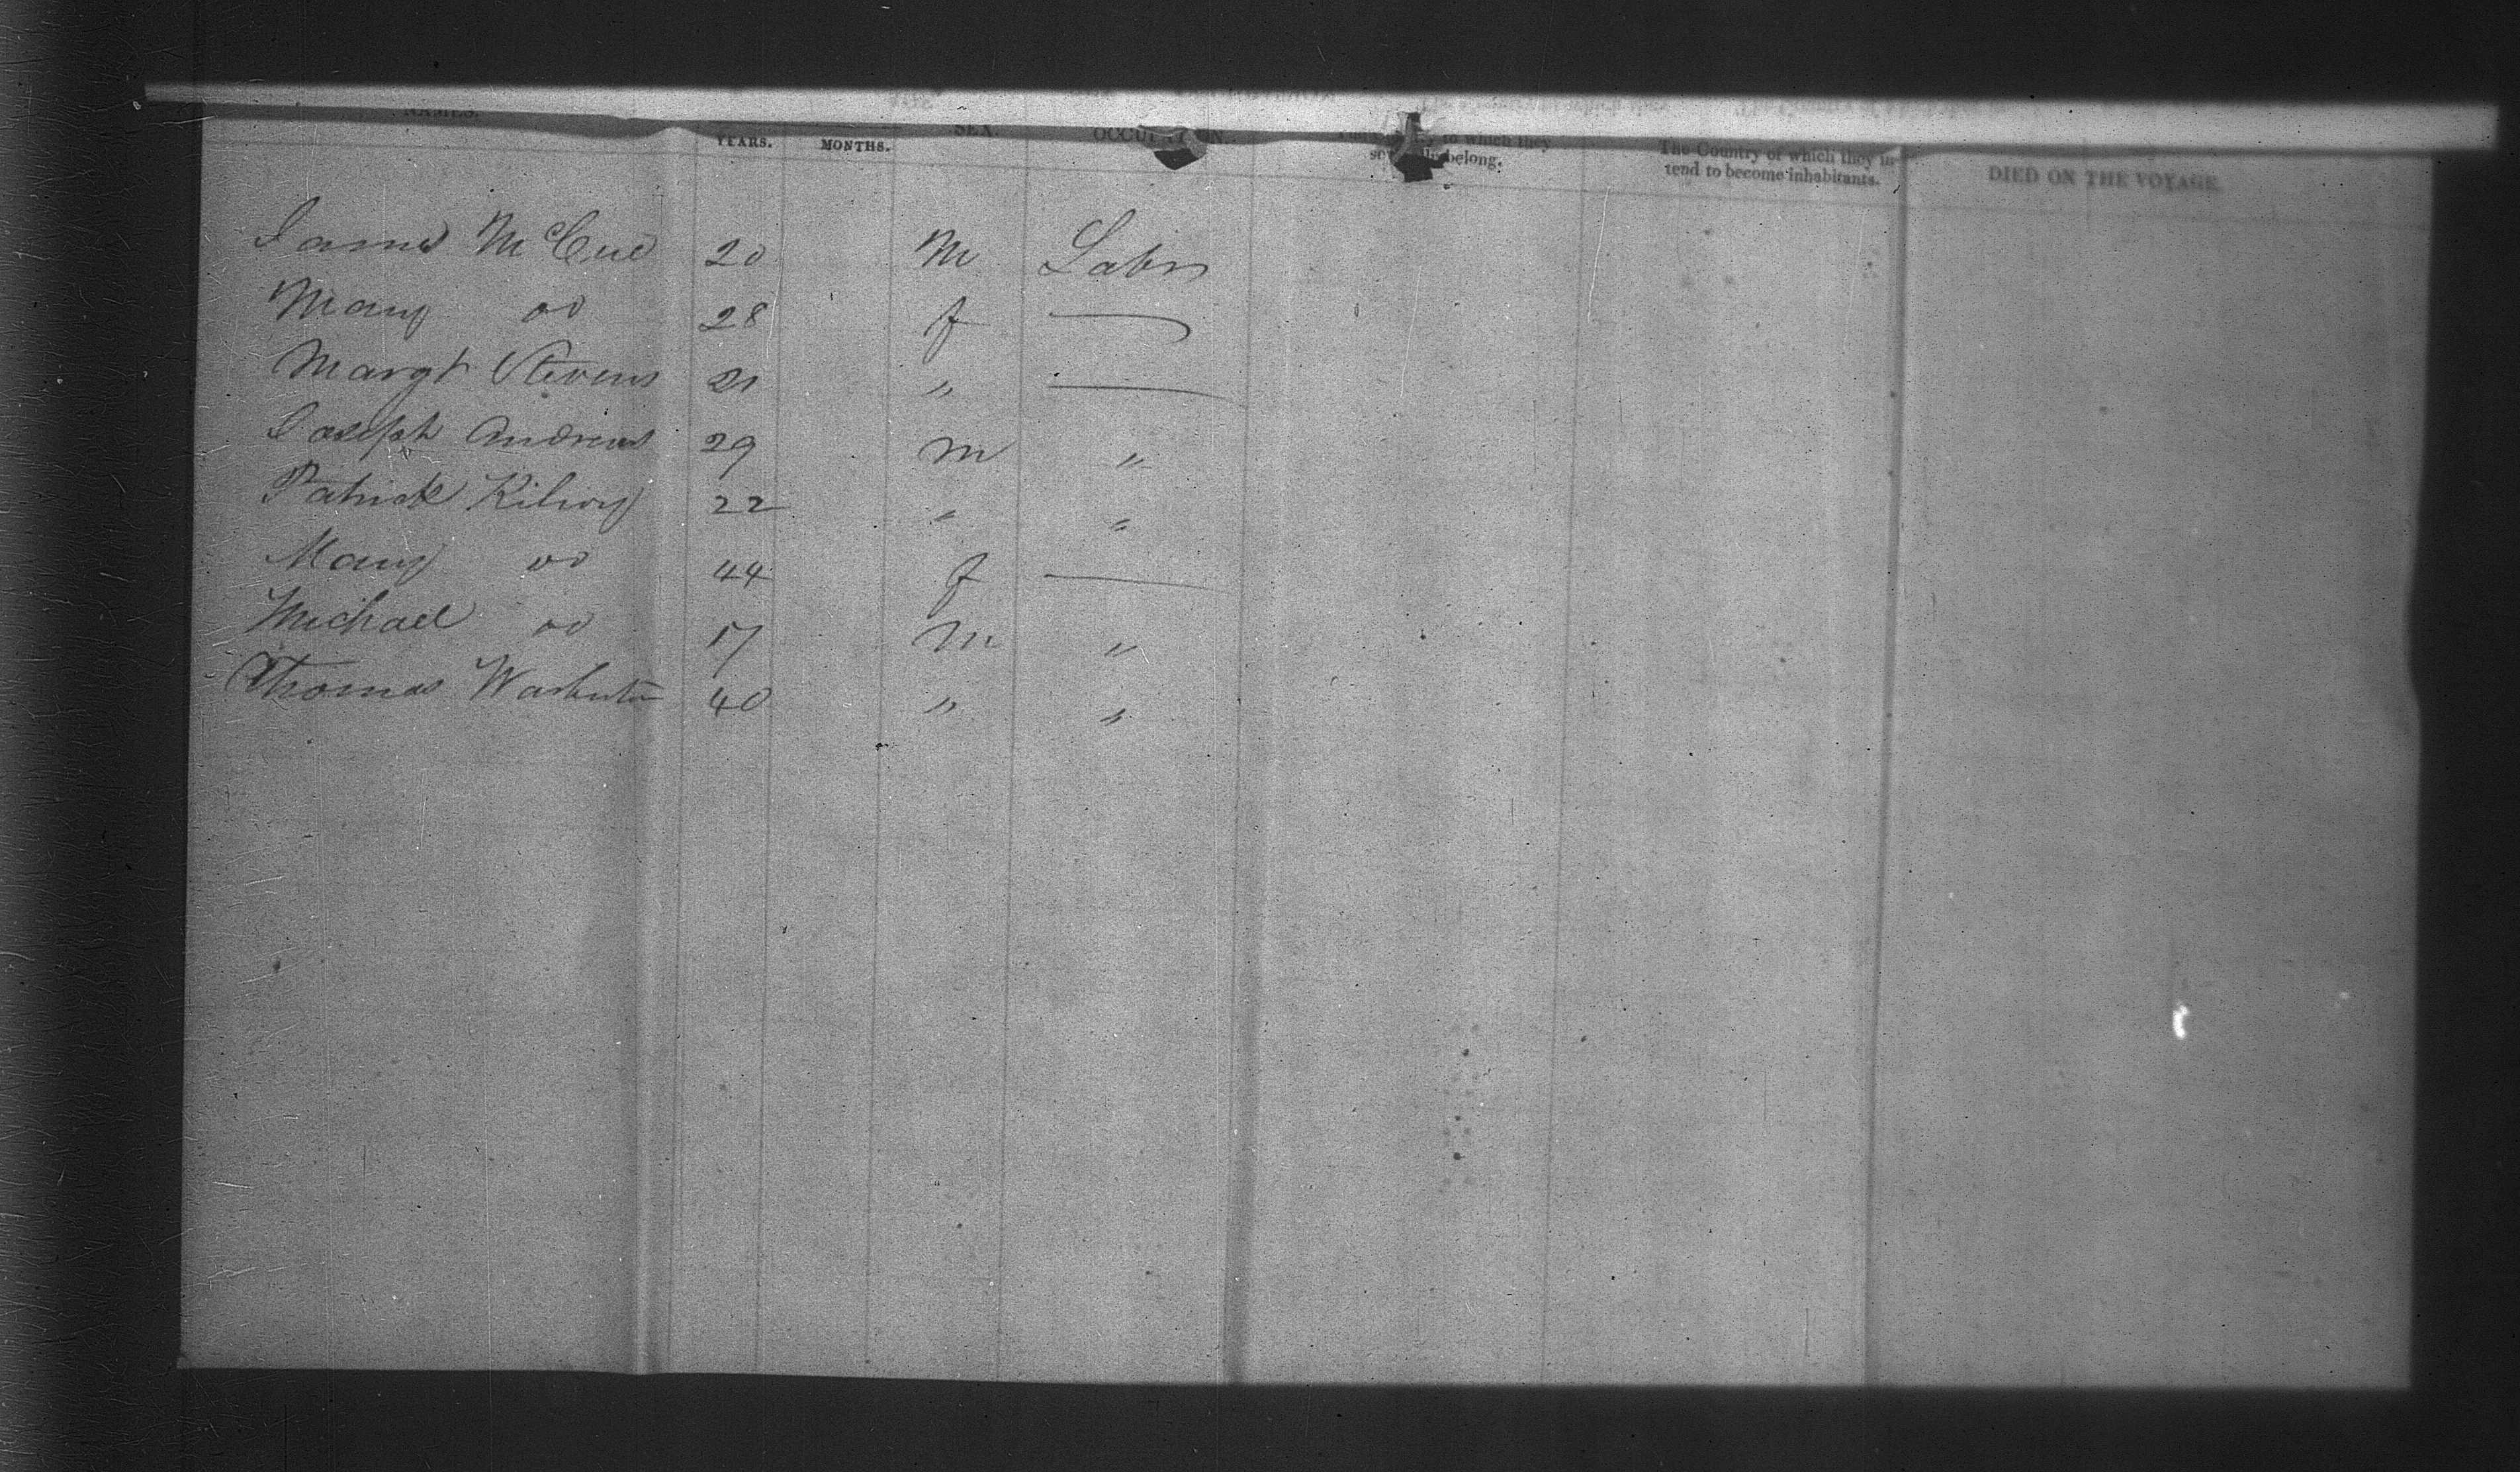 NAMES. YEARS. MONTHS. SEX. to which they belong. The Country of which they in-
tend to become inhabitants. DIED ON THE VOYAGE
James McCue 20 M Labr
Mary do 28 f
Margt Stevens 21 "
Joseph Andrews 29 M "
Patrick Kilroy 22 " "
Mary do 44 f
Michael do 17 M "
Thomas Warburton 40 " "